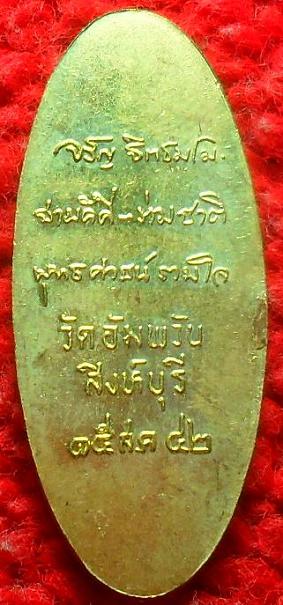 จรัญ ฐิตธมฺโม
สามัคคี - ร่วมชาติ
พุทธศาสน์ รวมใจ
วัดอัมพวัน
สิงห์บุรี
๑๕ ส ค ๔๒